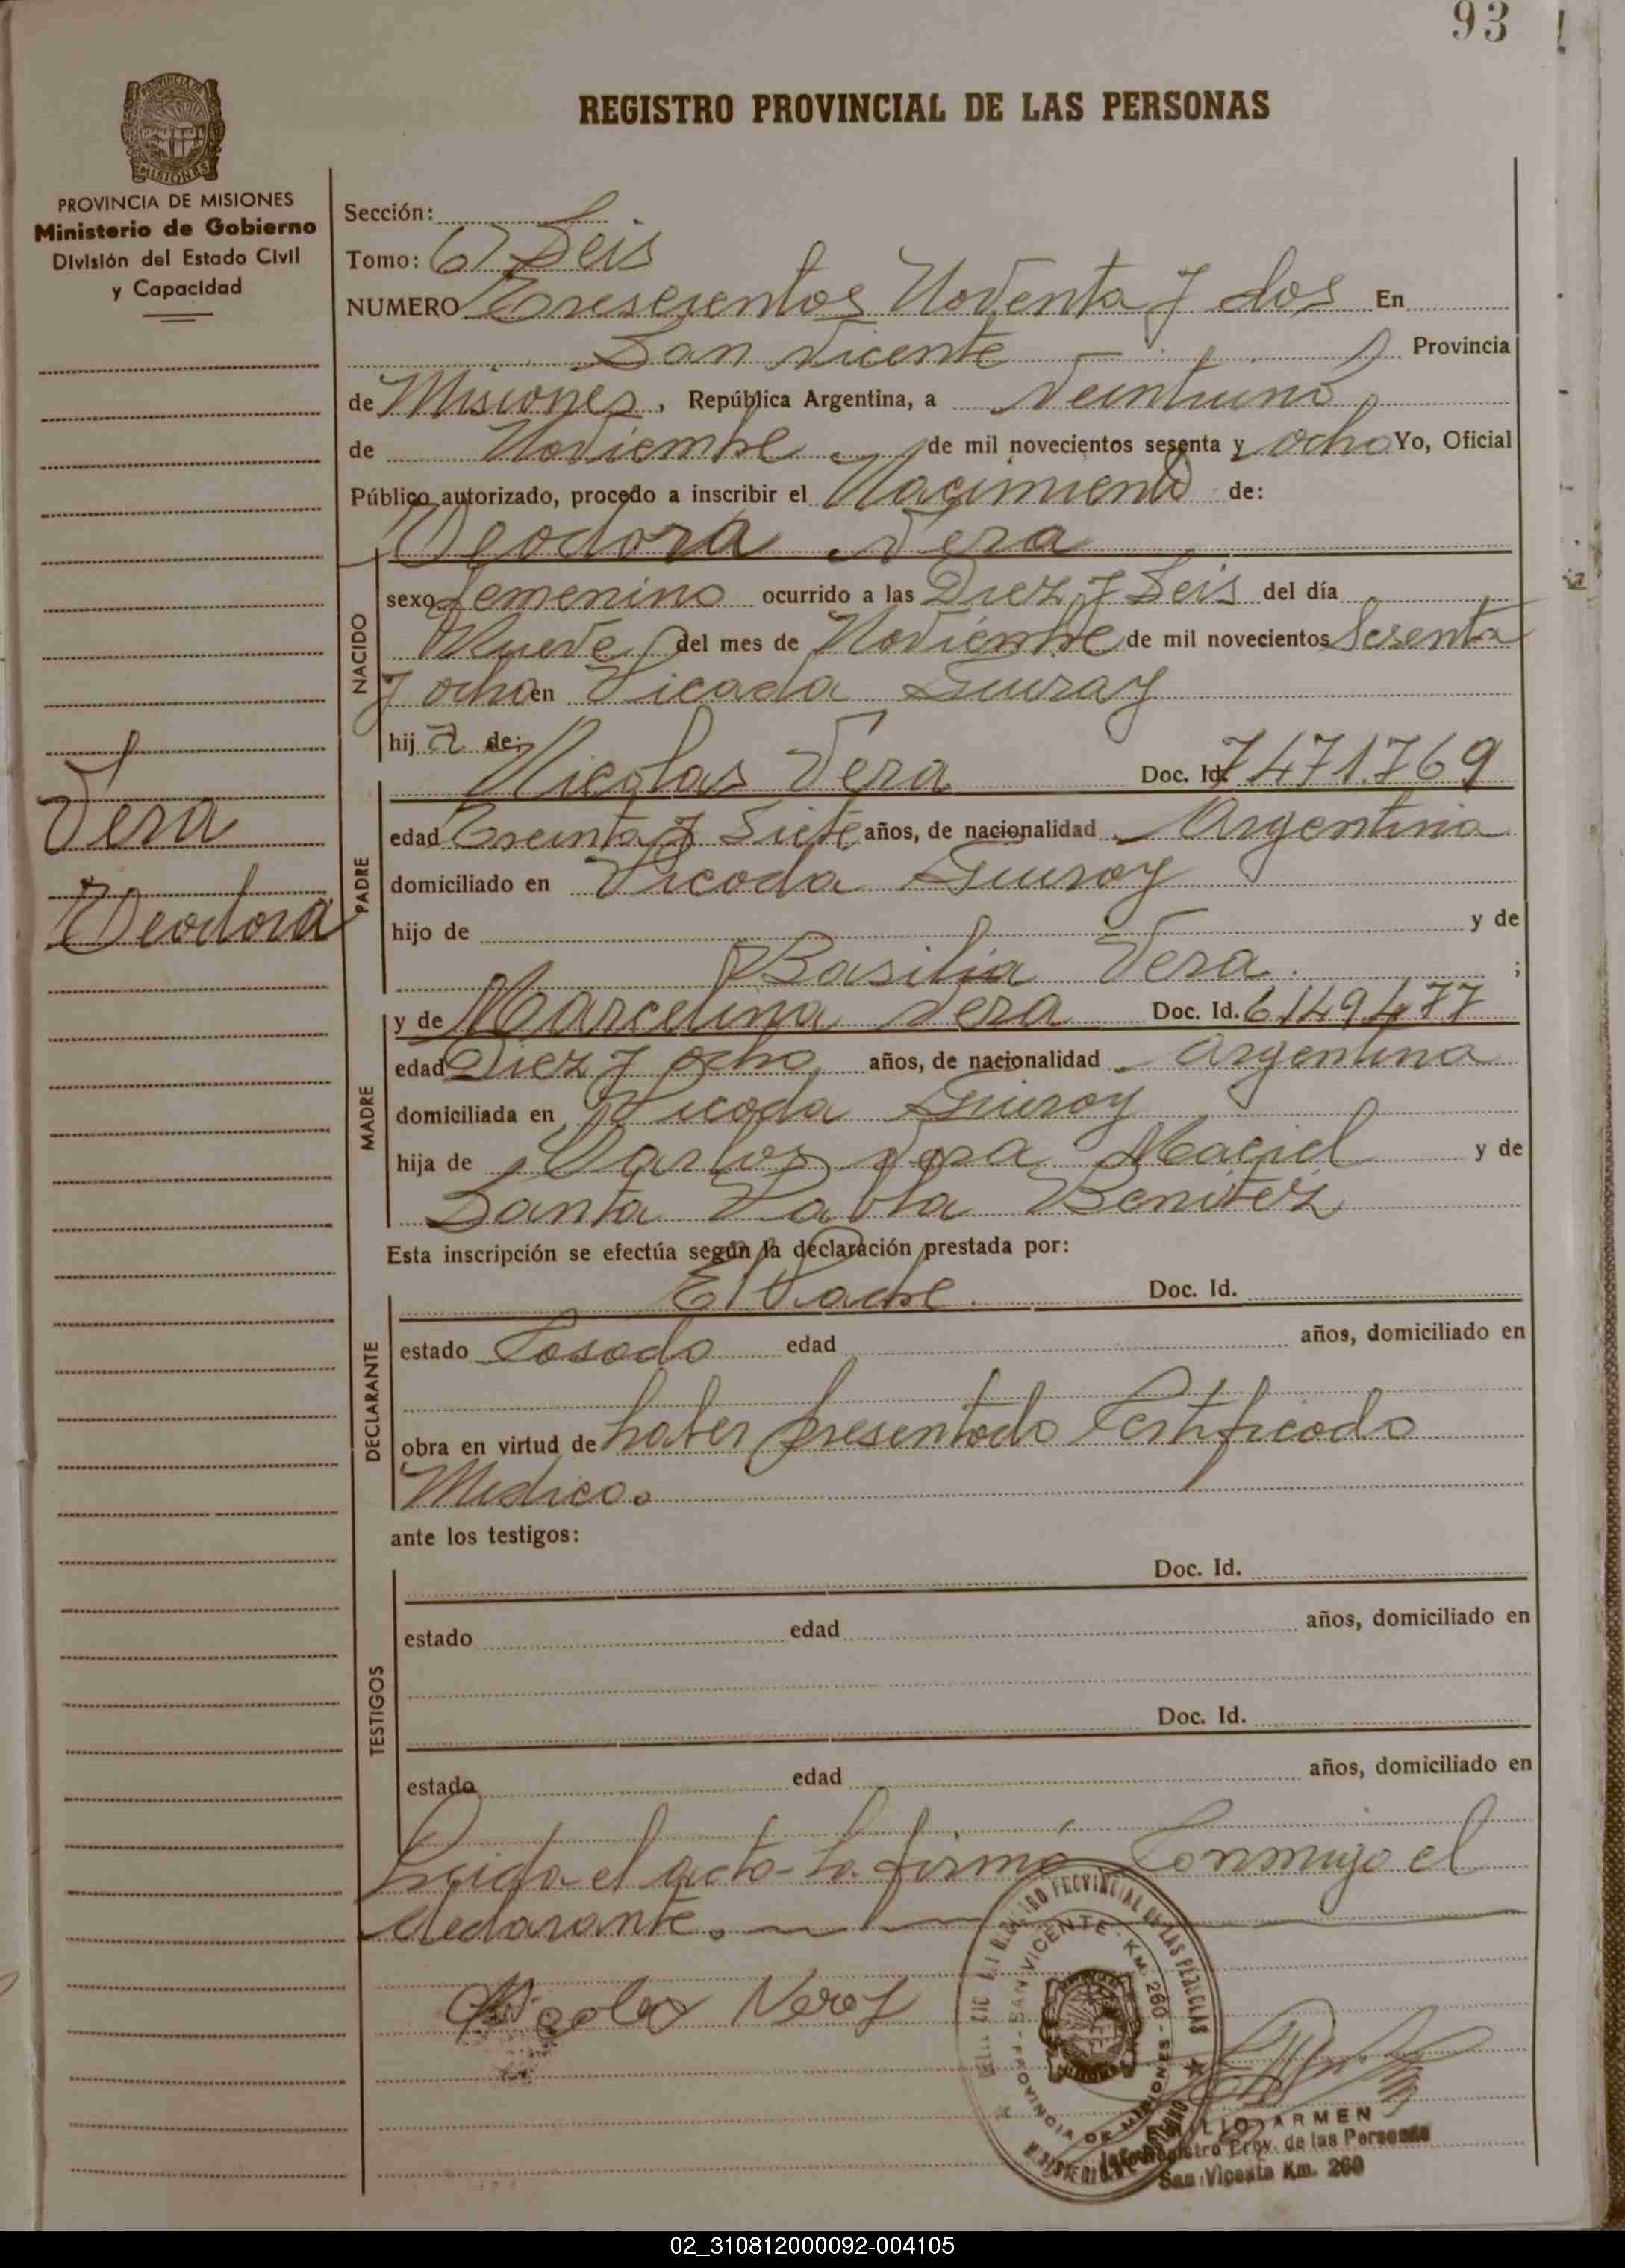 93
REGISTRO PROVINCIAL DE LAS PERSONAS
PROVINCIA DE MISIONES
Ministerio de Gobierno
División del Estado Civil
y Capacidad
Vera
Teodora
Sección:
Tomo: (6) Seis
NUMERO Trescientos Noventa y dos En
San Vicente Provincia
de Misiones, República Argentina, a Veintiuno
de Noviembre de mil novecientos sesenta y ocho Yo, Oficial
Público autorizado, procedo a inscribir el Nacimiento de:
Teodora Vera
NACIDO
sexo femenino ocurrido a las Diez y Seis del día
Nueve del mes de Noviembre de mil novecientos Sesenta
y ocho en Picada Guiray
hija de:
PADRE
Nicolas Vera Doc. Id. 7471.769
edad Treinta y Siete años, de nacionalidad Argentina
domiciliado en Picada Guiray
hijo de y de
Basilia Vera ;
MADRE
y de Marcelina Vera Doc. Id. 6149477
edad Diez y ocho años, de nacionalidad Argentina
domiciliada en Picada Guiray
hija de Carlos Vera Maciel y de
Santa Pabla Benitez
Esta inscripción se efectúa según la declaración prestada por:
DECLARANTE
El Padre. Doc. Id.
estado Casado edad años, domiciliado en
obra en virtud de haber presentado Certificado
Medico.
ante los testigos:
TESTIGOS
Doc. Id.
estado edad años, domiciliado en
Doc. Id.
estado edad años, domiciliado en
Leida el acta la firma Conmigo el
declarante.
Nicolas Vera
SAN VICENTE - KM. 260 - PROVINCIA DE MISIONES
ARMEN
Registro Prov. de las Personas
San Vicente Km. 260
02_310812000092-004105